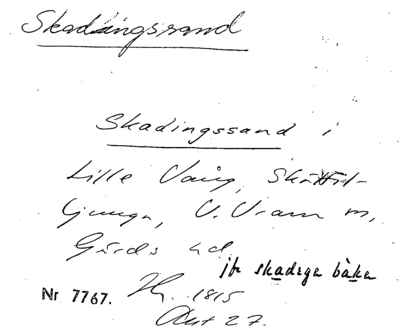 Skadingssand
Skadingssand i
Lille Vång, Skättil-
ljunga, V. Vram m,
Gärds hd
jfr skadega båka
Nr 7767. 1815
Akt 27.